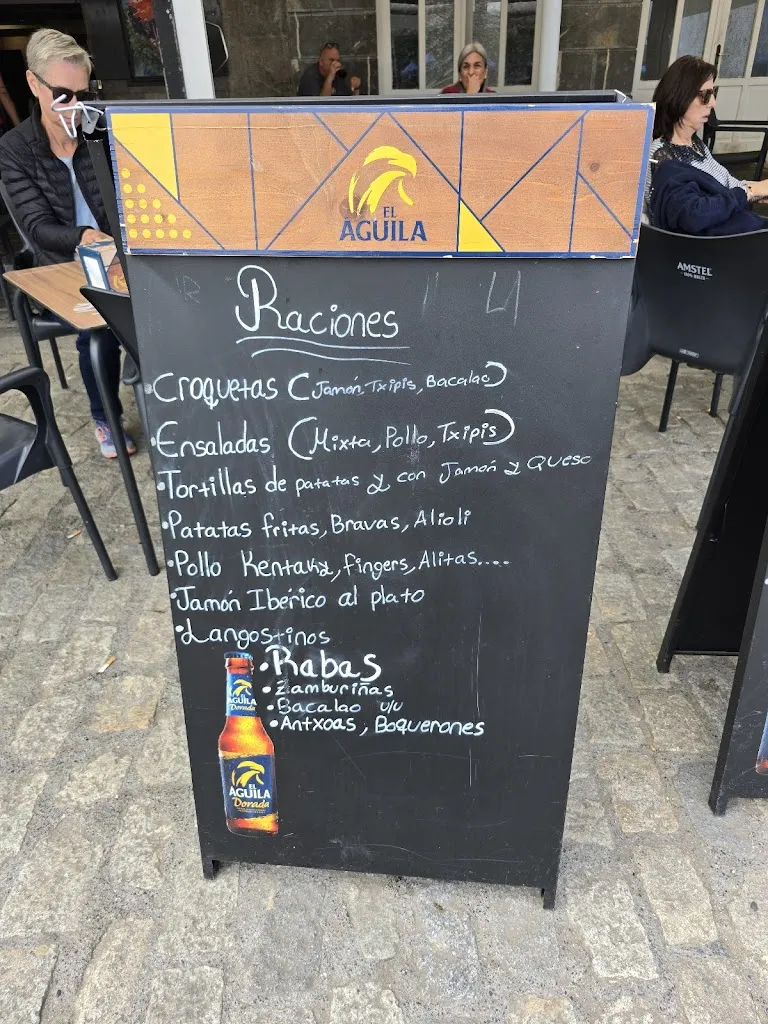 EL
AGUILA
AMSTEL
Raciones
• Croquetas (Jamón, Txipis, Bacalao)
• Ensaladas (Mixta, Pollo, Txipis)
• Tortillas de patatas y con Jamón y Queso
• Patatas fritas, Bravas, Alioli
• Pollo Kentaky, fingers, Alitas....
• Jamón Ibérico al plato
• Langostinos
• Rabas
• Zamburiñas
• Bacalao
• Antxoas, Boquerones
EL
AGUILA
Dorada
EL
AGUILA
Dorada